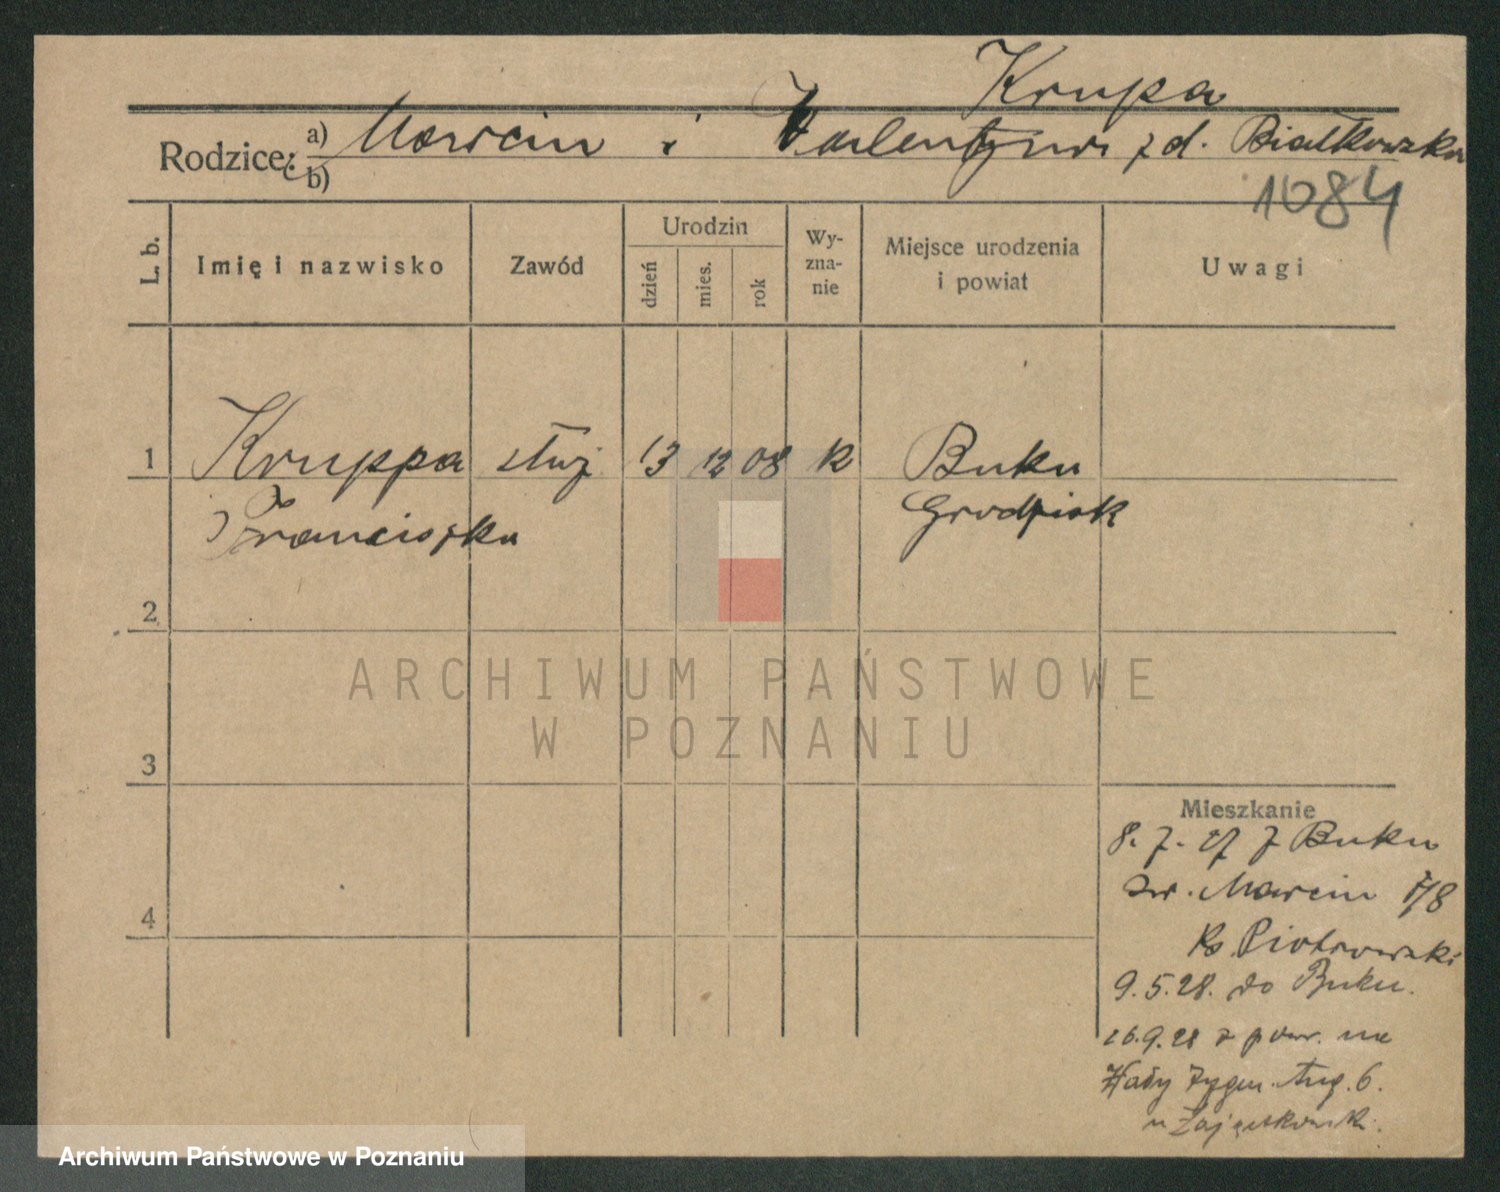 Krupa
Rodzice: a) Marcin i Walentyna z d. Białkowska
b)
1084
L. b.
Imię i nazwisko
Zawód
Urodzin
dzień
mies.
rok
Wy-
zna-
nie
Miejsce urodzenia
i powiat
Uwagi
1 Kruppa służ 13 12 08 k Buku
Franciszka Grodzisk
2
ARCHIWUM PAŃSTWOWE
W POZNANIU
3
Mieszkanie
8. 7. 27 z Buku
św. Marcin
4
Piotrowski
9.5.28. do Buku.
26.9.28 z pow. na
Wały Zygm. Aug. 6.
u
Archiwum Państwowe w Poznaniu